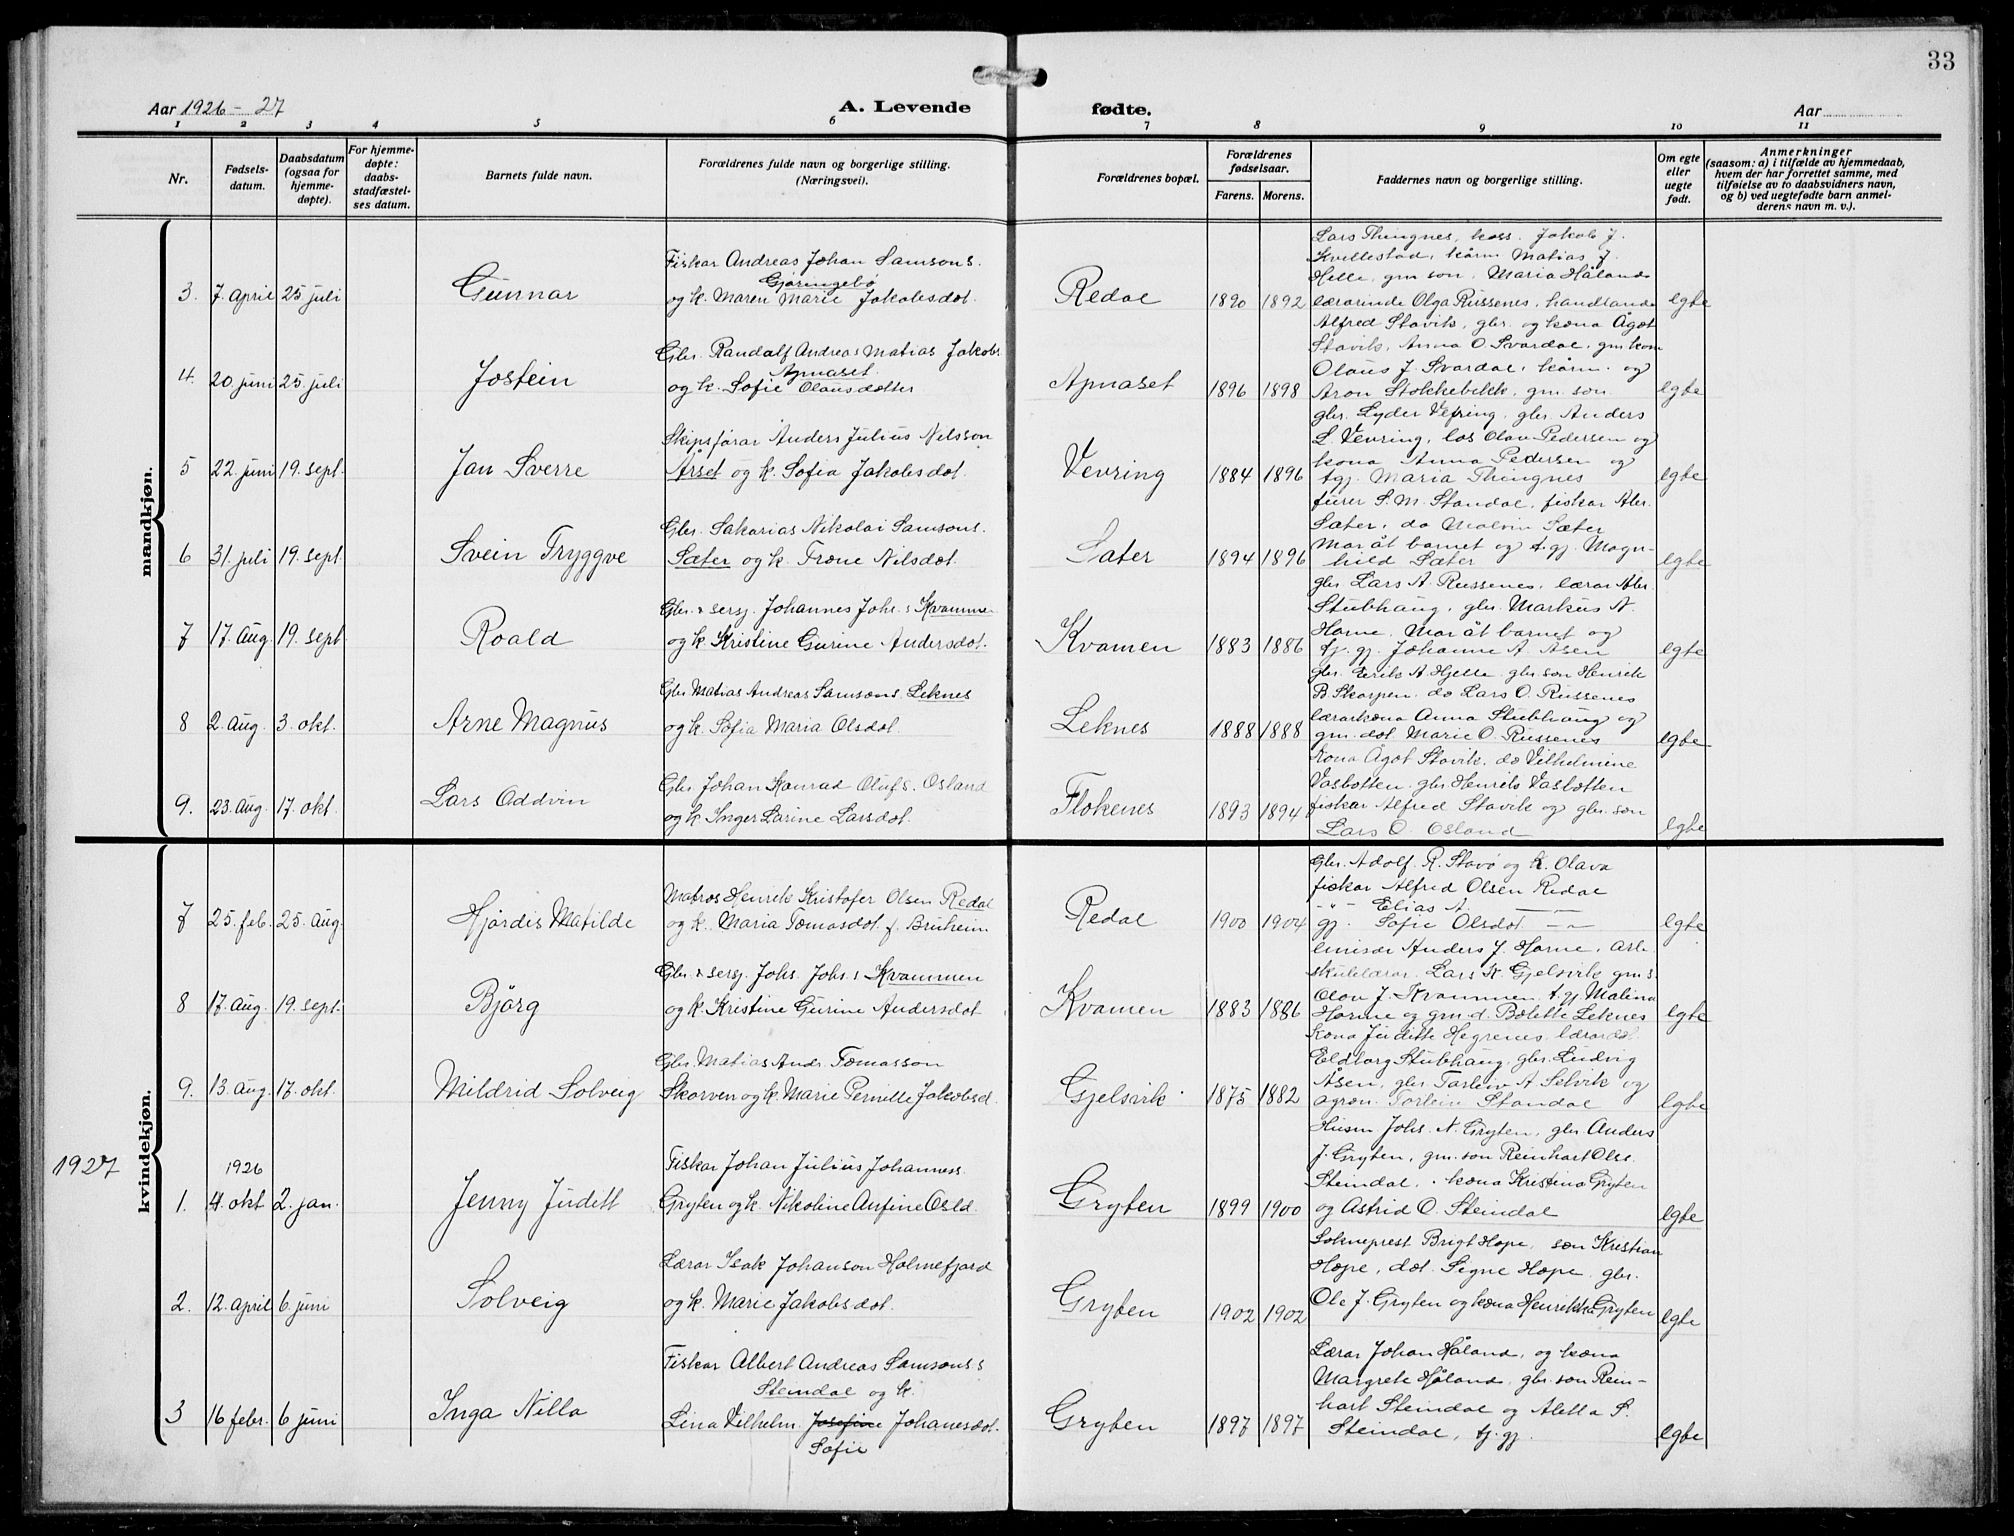 33
Aar 1926-27
A. Levende fødte.
Aar
1 2 3 4 5 6 7 8 9 10 11
Nr.
Fødsels-
datum.
Daabsdatum
(ogsaa for
hjemme-
døpte).
For hjemme-
døpte:
daabs-
stadfæstel-
ses datum.
Barnets fulde navn.
Forældrenes fulde navn og borgerlige stilling.
(Næringsvei).
Forældrenes bopæl.
Forældrenes
fødselsaar.
Farens. Morens.
Faddernes navn og borgerlige stilling.
Om egte
eller
uegte
født.
Anmerkninger
(saasom: a) i tilfælde av hjemmedaab,
hvem der har forrettet samme, med
tilføielse av to daabsvidners navn,
og b) ved uegtefødte barn anmel-
derens navn m. v.).
mandkjøn.
3. 7. april 25 juli
Gunnar
Fiskar Andreas Johan Samsons.
Gjøringebø
og k. Maren Marie Jakobsdot.
Redal 1890 1892
Lars Thingnes, kass. Jakob J.
Kvellestad, kårm. Matias J.
Helle, gm son, Maria Håland
lærarinde Olga Russenes, handlande
Alfred Stavik, gbr. og kona Ågot
egte
4. 20. juni 25. juli
Jostein
Gbr. Randalf Andreas Matias Jakobs
Apnaset
og k. Sofie Olausdotter
Apnaset 1896 1898
Stavik, Anna O. Svardal, gm kon
Olaus J. Svardal, kårm. og
Aron Stokkebekk, gm. son
egte
5 22. juni 19. sept.
Jan Sverre
Skipsförar Anders Julius Nilsson
Årset og k. Sofia Jakobsdot.
Vevring 1884 1896
gbr. Lyder Vefring, gbr. Anders
L. Vevring, los Olav Pedersen og
kona Anna Pedersen og
tgj. Maria Thingnes
egte
6 31. juli 19. sept.
Svein Tryggve
Gbr. Sakarias Nikolai Samsons.
Sæter og k. Trone Nilsdot.
Sæter 1894 1896
furer S. M. Standal, fiskar Abr.
Sæter, do Malvin Sæter
Mor åt barnet og t.gj. Magn-
hild Sæter
egte
7 17. Aug. 19. sept
Roald
Gbr. & sersj. Johannes Johs. s Kvammen
og k. Kristine Gurine Andersdot.
Kvamen 1883 1886
gbr. Lars A. Russenes, lærar Abr.
Stubhaug, gbr. Markus A.
Horne, Mor åt barnet og
tj. gj. Johanne A. Åsen
egte
8 2. Aug. 3. okt.
Arne Magnus
Gbr. Matias Andreas Samsons. Leknes
og k. Sofia Maria Olsdot.
Leknes 1888 1888
gbr. Erik A. Hjelle, gbr. son Henrik
B. Skorpen, do Lars O. Russenes
lærarkona Anna Stubhaug og
gm. dot. Marie O. Russenes
egte
9. 23. Aug. 17. okt.
Lars Oddvin
Gbr. Johan Konrad Olufs. Osland
og k. Inger Larine Larsdot.
Flokenes 1893 1894
Kona Ågot Stavik, do Vilhelmine
Vasbotten, gbr. Henrik Vasbotten
fiskar Alfred Stavik og gbr. son
Lars O. Osland
egte
kvindekjøn.
7 25. feb. 25. Aug.
Hjørdis Matilde
Matros Henrik Kristofer Olsen Redal
og k. Maria Tomasdot. f. Bruheim
Redal 1900 1904
Gbr. Adolf R. Stavø og k. Olava
fiskar Alfred Olsen Redal
-"- Elias A. -"-
gj. Sofie Olsdot. -"-
egte
8 17. Aug. 19. sept.
Bjørg
Gbr. & sersj. Johs. Johs. s Kvammen
og k. Kristine Gurine Andersdot
Kvamen 1883 1886
emisær Anders J. Horne, arb.
skulelærar Lars K. Gjelsvik gm s.
Olav J. Kvammen, t.gj. Malina
Horne og gm. d. Bolette Leknes
egte
9. 13 aug. 17. okt.
Mildrid Solveig
Gbr. Matias Andr. Tomasson
Skorven og k. Marie Pernille Jakobsd.
Gjelsvik 1875 1882
Kona Juditte Hegrenes, lærardot.
Eldborg Stubhaug, gbr. Ludvig
Åsen, gbr. Torleiv A Selvik og
agron. Torleiv Standal
egte
1927
1926
1. 4. okt 2. jan.
Jenny Judett
Fiskar Johan Julius Johanness.
Gryten og k. Nikoline Anfine Osld.
Gryten 1899 1900
Husm Johs. N. Gryten, gbr Anders
J. Gryten, gm. son Reinhart Olse.
Steindal, kona Kristina Gryten
og Astrid O. Steindal
egte
2. 12. april 6. juni
Solveig
Lærar Isak Johanson Holmefjord
og k. Marie Jakobsdot.
Gryten 1902 1902
Sokneprest Brigt Hope, son Kristian
Hope, dot. Signe Hope, gbr.
Ole J. Gryten og kona Henrikka Gryten
egte
3 16 febr. 6 juni
Inga Nilla
Fiskar Albert Andreas Samsons. s
Steindal og k.
Lina Vilhelm. Josefine Johanesdot.
Sofie
Gryten 1897 1897
Lærar Johan Håland, og kona
Margrete Håland, gbr. son Rein-
hart Steindal og Aletta S.
Steindal, tj. gj.
egte